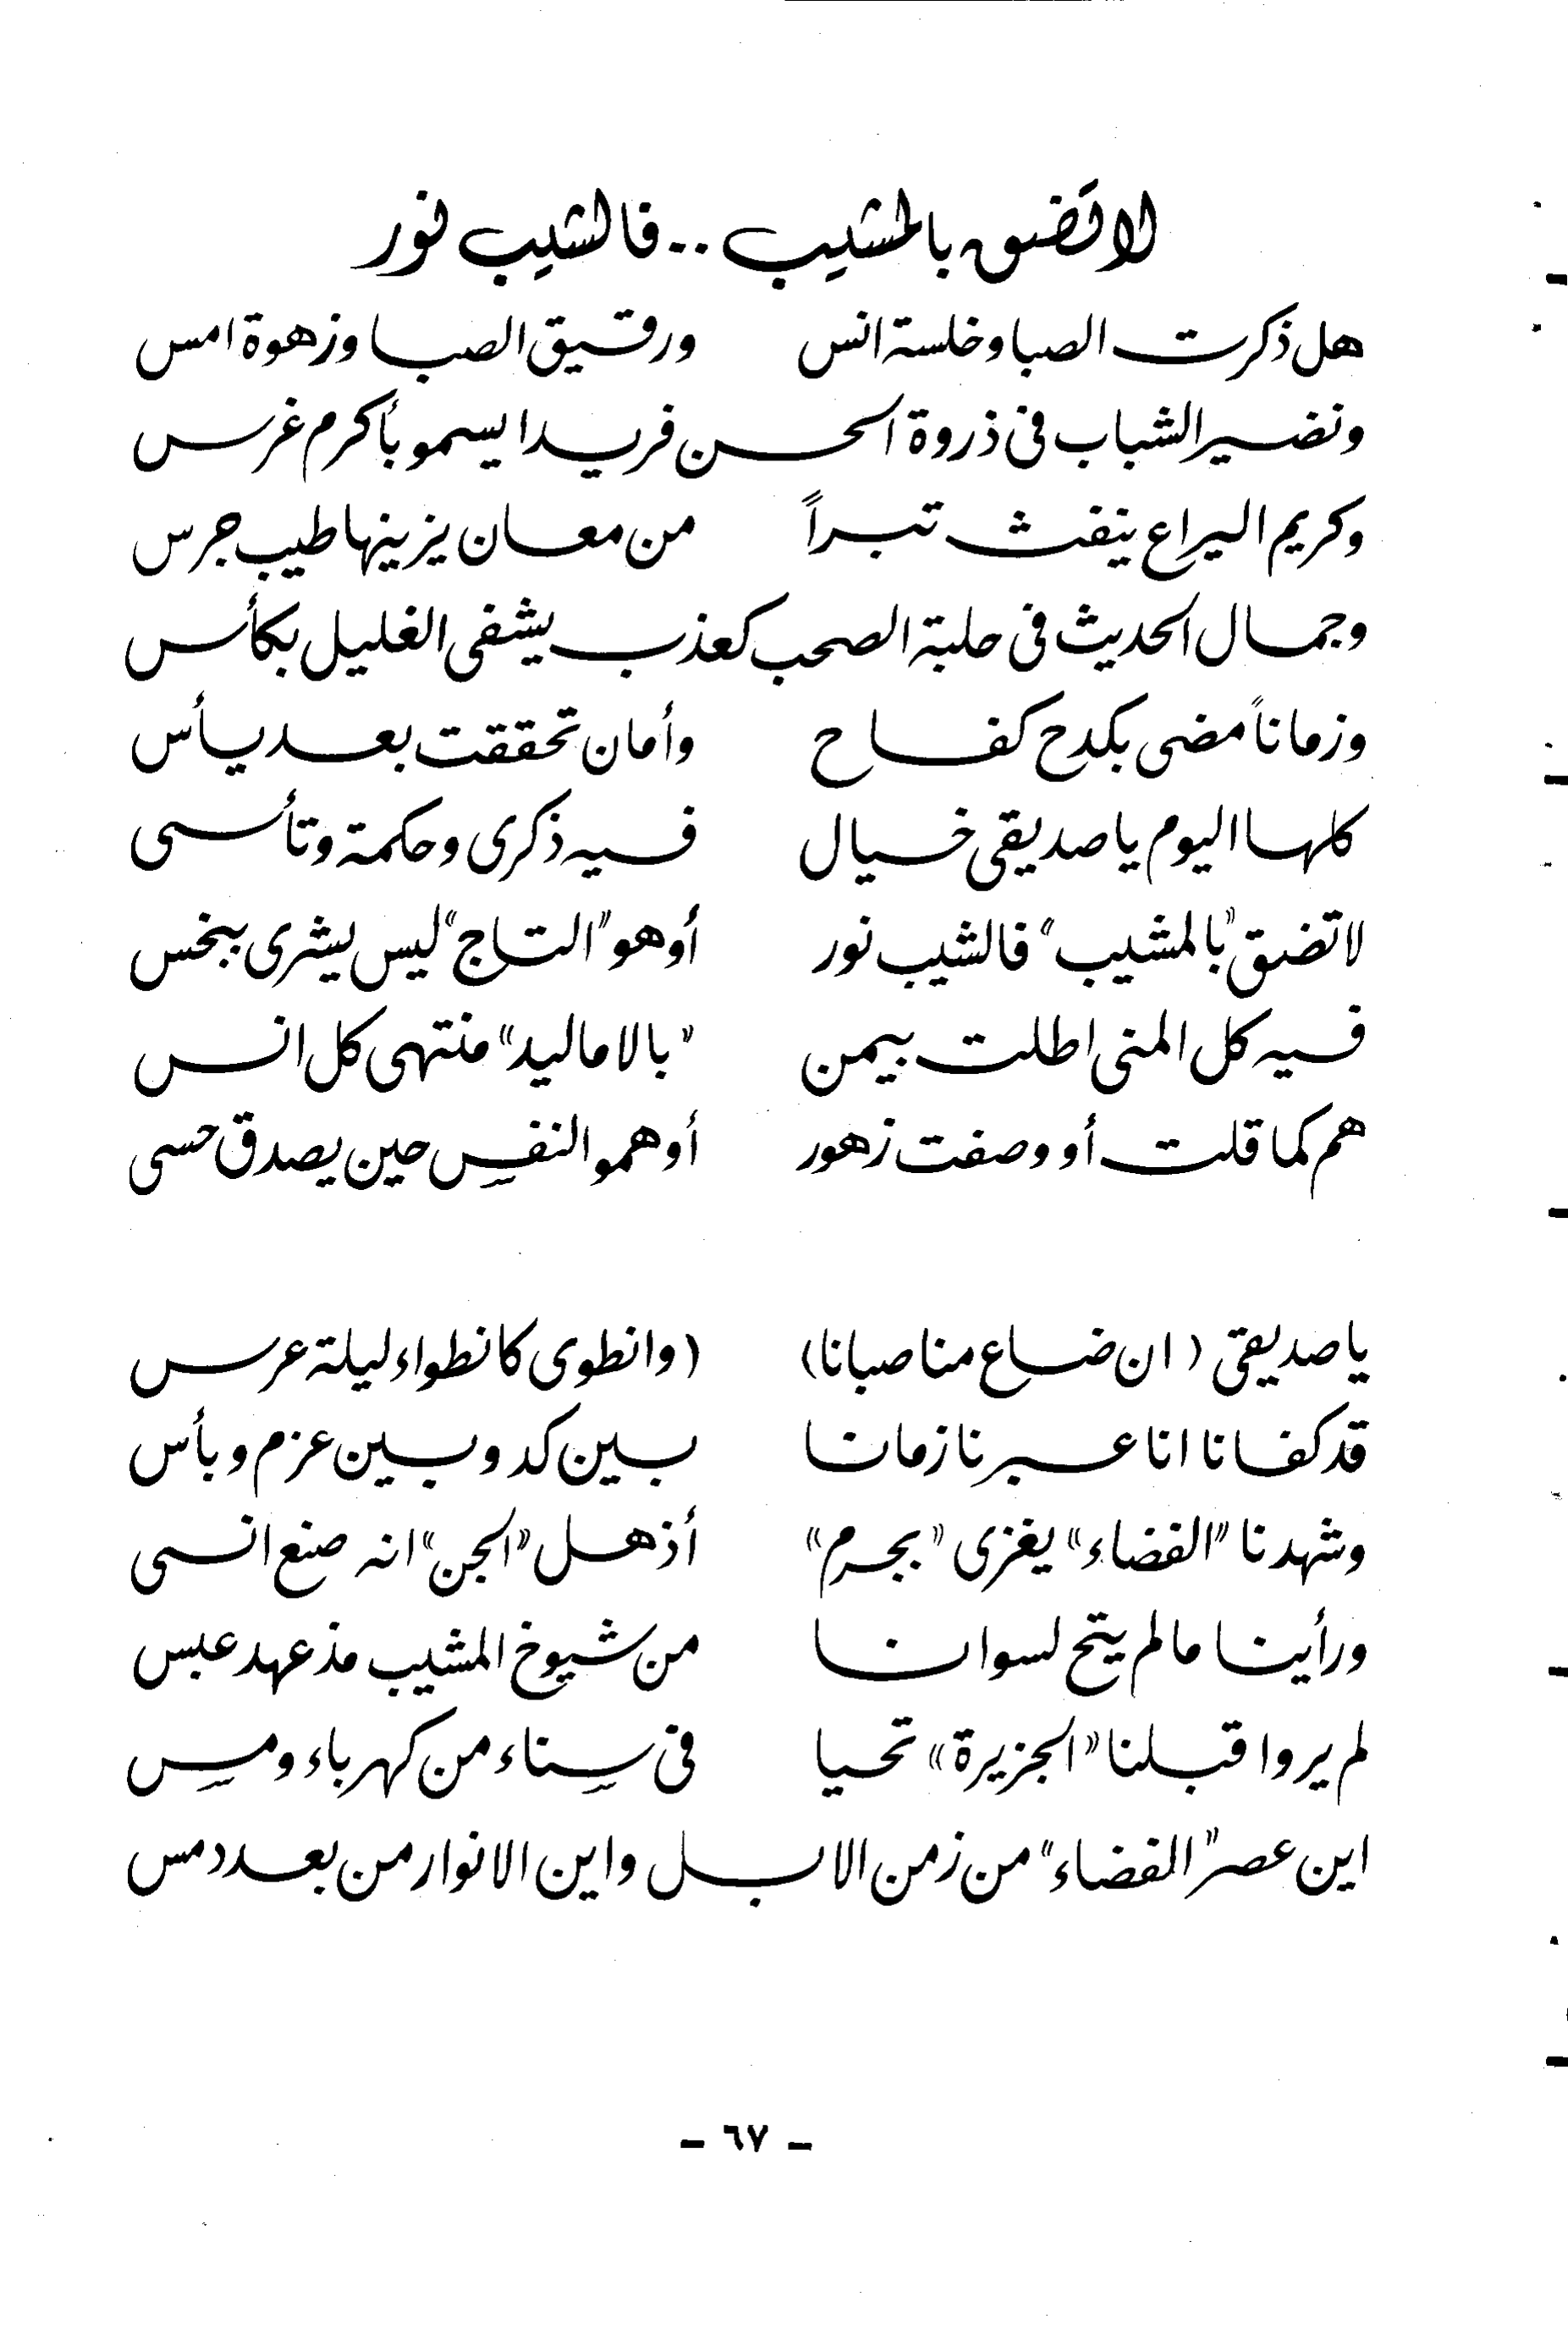 لا تضق بالمشيب .. فالشيب نور
هل ذكرت الصبا وخلسة انس ورقيق الصبا وزهوة امس
ونضير الشباب في ذروة الحسن فريدا يسمو بأكرم غرس
وكريم اليراع ينفث تبراً من معان يزينها طيب جرس
وجمال الحديث في حلبة الصحب كعذب يشفى الغليل بكأس
وزماناً مضى بكدح كفاح وأمان تحققت بعد يأس
كلها اليوم يا صديقي خيال فيه ذكرى وحكمة وتأسى
لا تضق "بالمشيب" فالشيب نور أو هو "التاج" ليس يشرى ببخس
فيه كل المنى اطلت بيمن "بالاماليد" منتهى كل انس
هم كما قلت أو وصفت زهور أو همو النفس حين يصدق حسى
يا صديقي (ان ضاع منا صبانا) (وانطوى كانطواء ليلة عرس
قد كفانا انا عبرنا زمانا بين كد وبين عزم وبأس
وشهدنا "الفضاء" يغزى "بجرم" أذهل "الجن" انه صنع انسى
ورأينا ما لم يتح لسوانا من شيوخ المشيب مذ عهد عبس
لم يروا قبلنا "الجزيرة" تحيا في سناء من كهرباء ومس
اين عصر "الفضاء" من زمن الابل واين الانوار من بعد دمس
- ٦٧ -